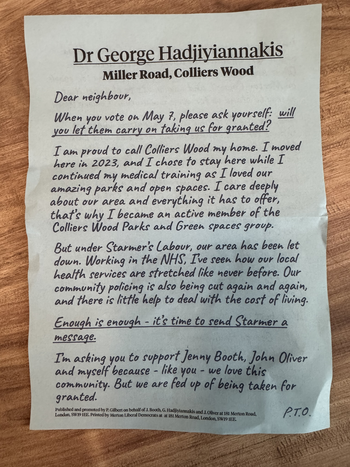 Dr George Hadjiyiannakis
Miller Road, Colliers Wood
Dear neighbour,
When you vote on May 7, please ask yourself: will
you let them carry on taking us for granted?
I am proud to call Colliers Wood my home. I moved
here in 2023, and I chose to stay here while I
continued my medical training as I loved our
amazing parks and open spaces. I care deeply
about our area and everything it has to offer,
that's why I became an active member of the
Colliers Wood Parks and Green spaces group.
But under Starmer's Labour, our area has been let
down. Working in the NHS, I've seen how our local
health services are stretched like never before. Our
community policing is also being cut again and again,
and there is little help to deal with the cost of living.
Enough is enough - it's time to send Starmer a
message.
I'm asking you to support Jenny Booth, John Oliver
and myself because - like you - we love this
community. But we are fed up of being taken for
granted.
Published and promoted by P. Gilbert on behalf of J. Booth, G. Hadjiyiannakis and J. Oliver at 181 Merton Road,
London, SW19 1EE. Printed by Merton Liberal Democrats at at 181 Merton Road, London, SW19 1EE.
P.T.O.